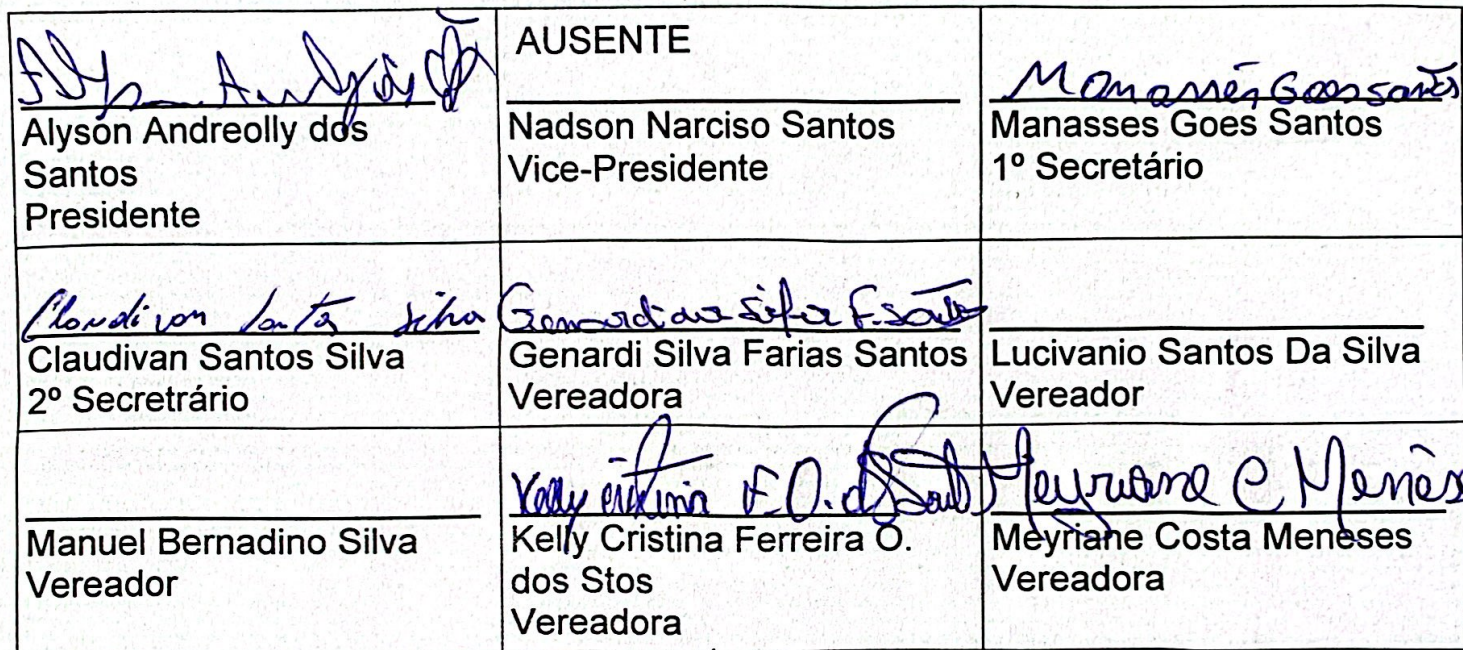 AUSENTE
Alyson Andreolly dos
Santos
Presidente
Nadson Narciso Santos
Vice-Presidente
Manasses Goes Santos
Manasses Goes Santos
1º Secretário
Claudivan Santos Silva
Claudivan Santos Silva
2º Secretrário
Genardi Silva Farias Santos
Vereadora
Lucivanio Santos Da Silva
Vereador
Manuel Bernadino Silva
Vereador
Kelly Cristina F. O. d
Kelly Cristina Ferreira O.
dos Stos
Vereadora
Meyriane C. Menes
Meyriane Costa Meneses
Vereadora